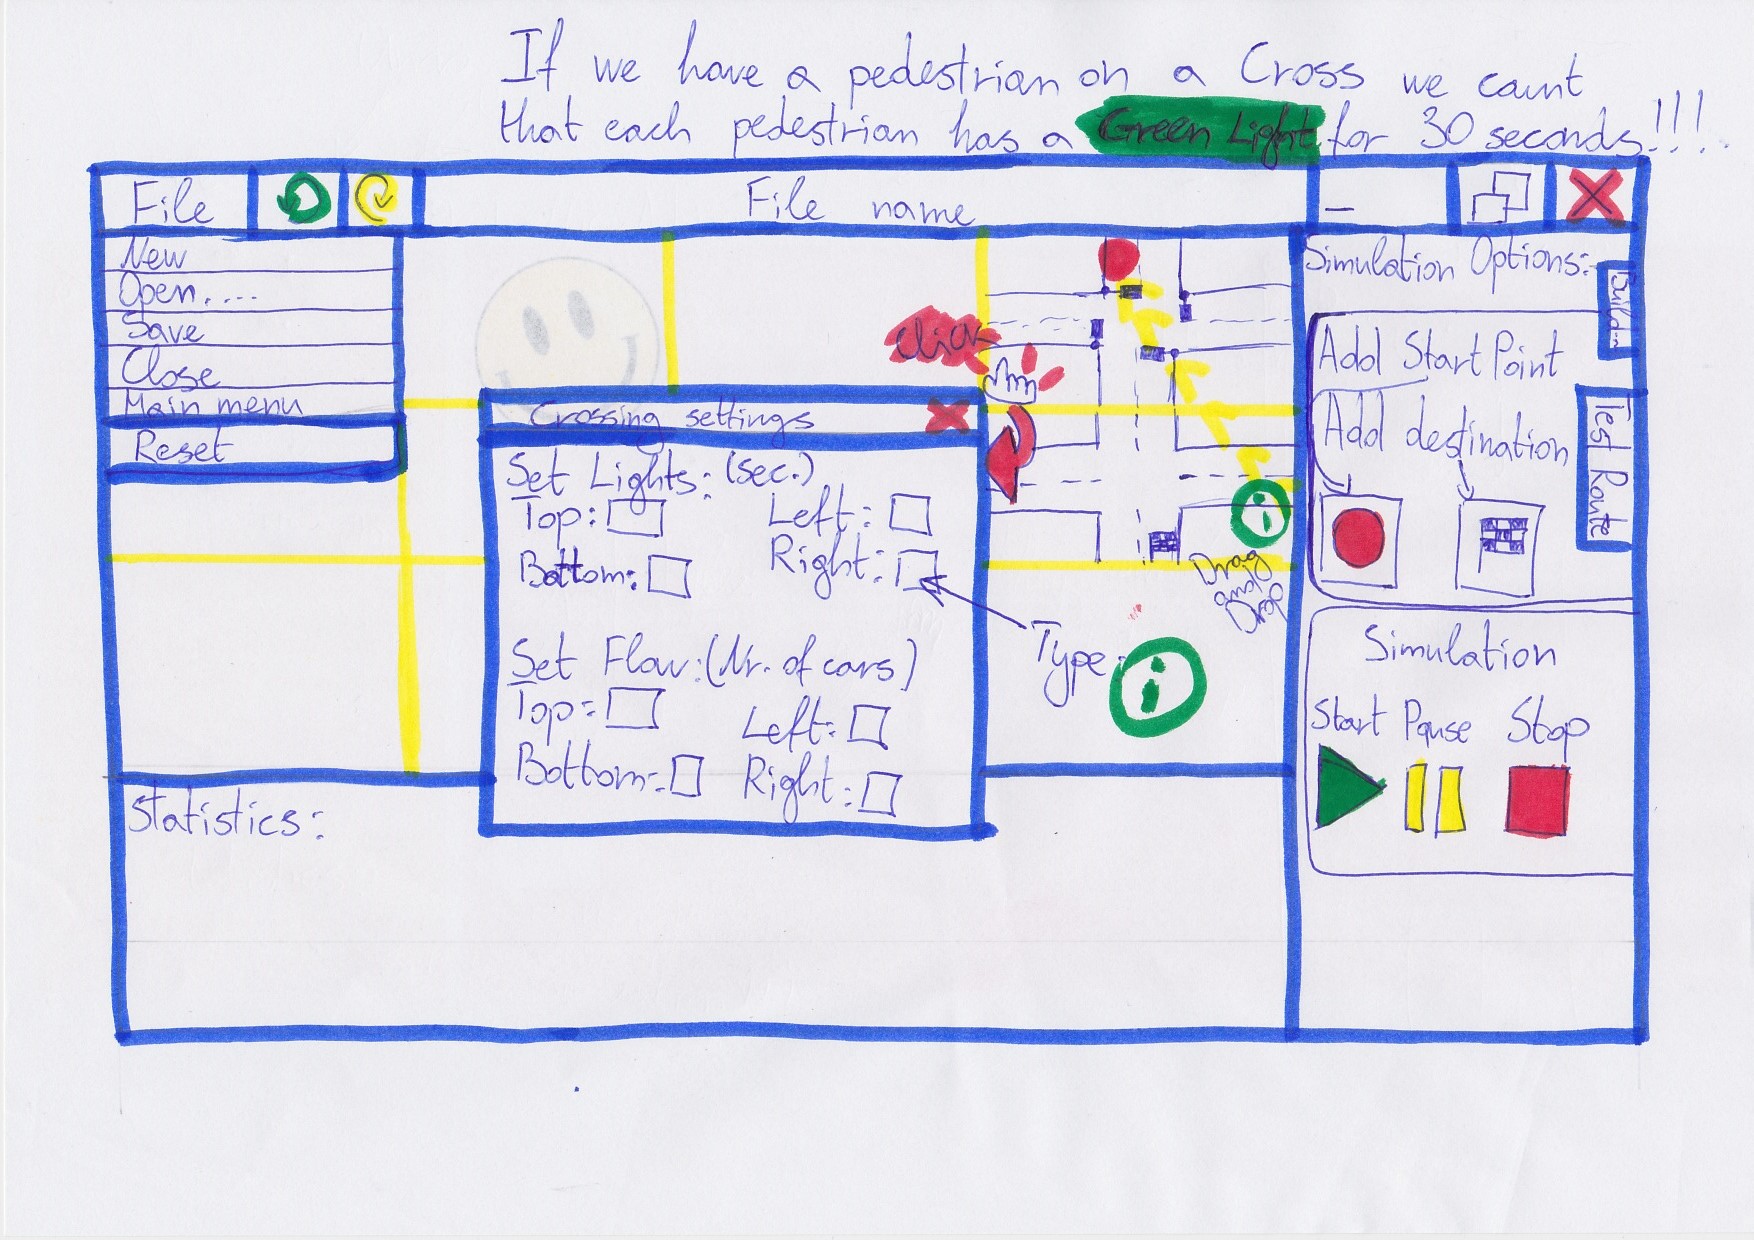 If we have a pedestrian on a Cross we count
that each pedestrian has a Green Light for 30 seconds!!!
File
File name
New
Open....
Save
Close
Main menu
Reset
Click
Crossing settings
Set Lights: (sec.)
Top:
Left:
Bottom:
Right:
Set Flow: (Nr. of cars)
Top:
Left:
Bottom:
Right:
Type:
i
i
Drag
and
Drop
Statistics:
Simulation Options:
Build
Add Start Point
Add destination
Test Route
Simulation
Start Pause Stop